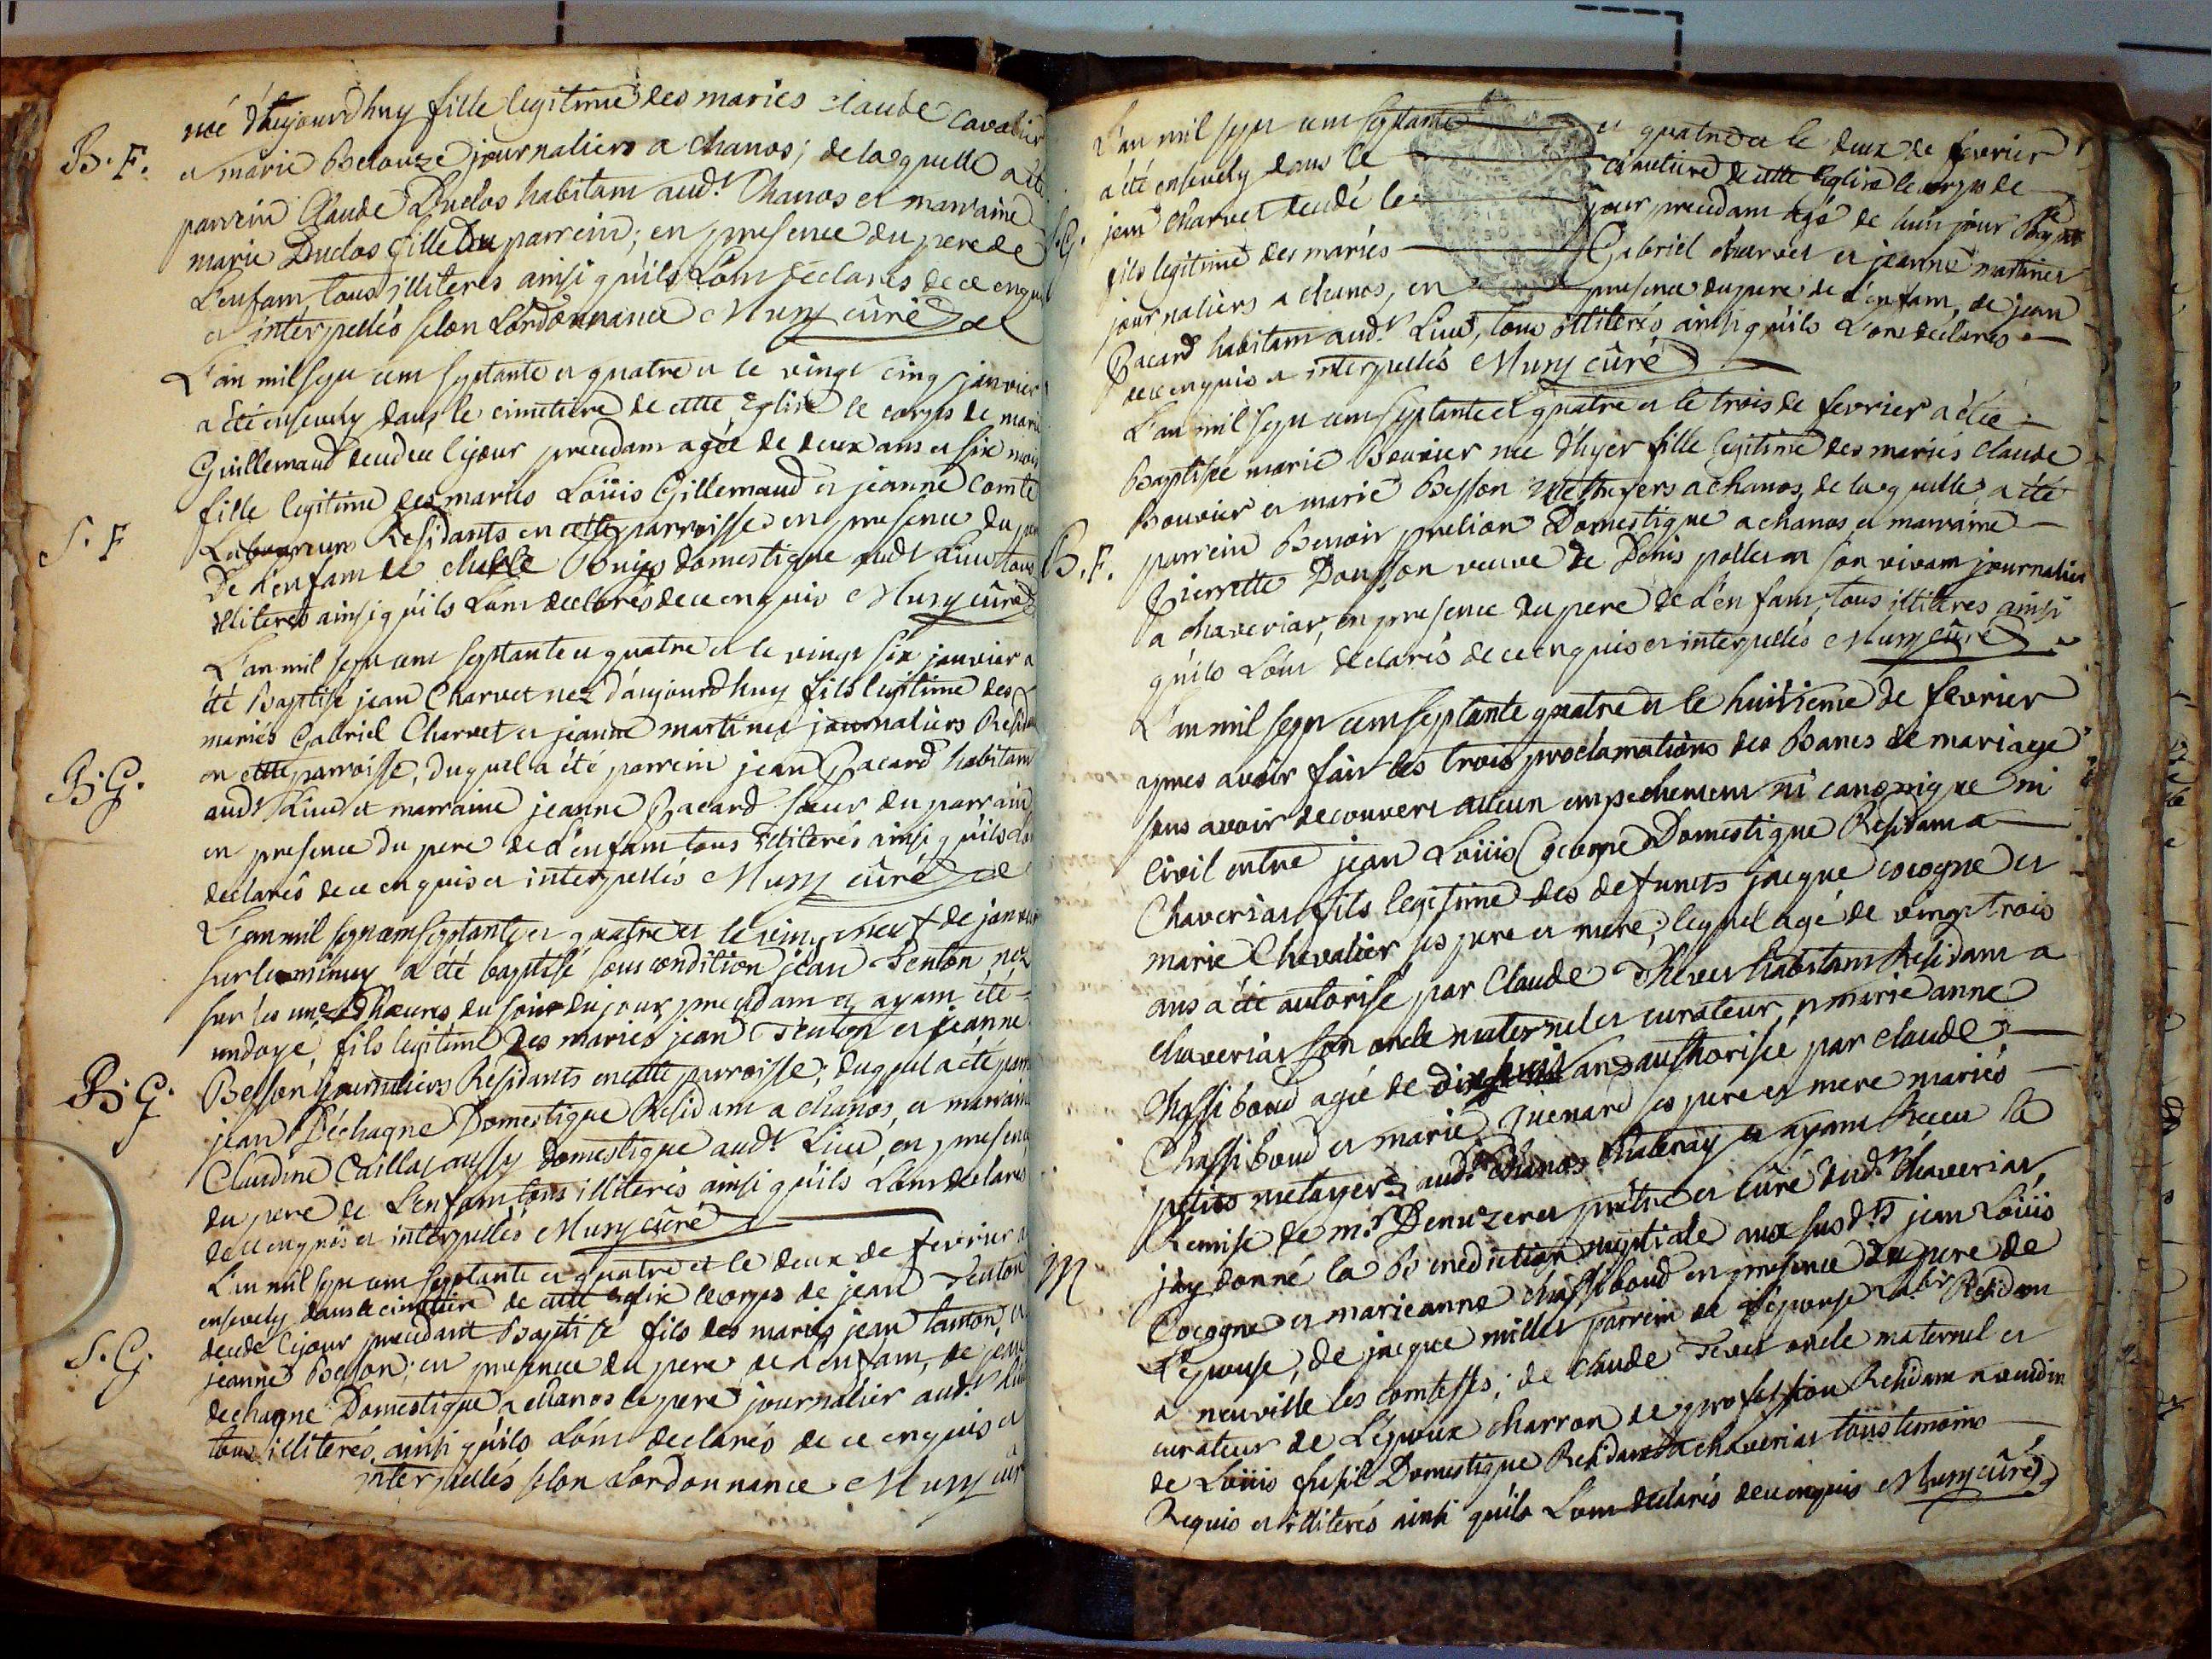 née d'haujourdhuy fille legitime des mariés Claude Cavalier
B. F.
et marie Belouze journaliers a Chanos; de laquelle a été
parrein Claude Duclos habitant aud.t Chanos et marraine
marie Duclos fille du parrein; en presence du pere de
L'enfant, tous illiterés ainsi qu'ils L'ont déclarés de ce enquis
et interpellés selon L'ordonnance Muny curé
L'an mil sept cent septante et quatre et le vingt cinq janvier
a été ensevely dans le cimetiere de cette Eglise le corps de marie
Guillemaud decedée le jour precedant agée de deux ans et six mois
fille legitime des mariés Loüis Gillemaud et jeanne Comte
S. F
Laboureurs Residants en cette parroisse en presence du pere
De L'enfant de Buijs domestique aud.t Lieu tous
illiterés ainsi qu'ils L'ont declarés de ce enquis Muny curé
L'an mil sept cent septante et quatre et le vingt six janvier a
été Baptisé jean Charvet nez d'aujourdhuy fils legitime des
mariés Gabriel Charvet et jeanne martinet journaliers Residants
B. G.
en cette parroisse, duquel a été parrein jean Pacard habitant
aud.t Lieu et marraine jeanne Pacard sœur du parrain
en presence du pere de L'enfant tous illiterés ainsi qu'ils L'ont
declarés de ce enquis et interpellés Muny curé
L'an mil sept cent septante et quatre et le vingt neuf de janvier
sur le minuy a été baptisé sous condition jean Tenton nez
sur les unze heures du soir du jour precedant et ayant été
undoyé, fils legitime des mariés jean Tenton et jeanne
B. G.
Besson journaliers Residants en cette parroisse; duquel a été parrein
jean Déchagne Domestique Residant a chanos, et marraine
Claudine Caillat aussy domestique aud.t Lieu, en presence
du pere de L'enfant tous illiterés ainsi qu'ils L'ont declarés
de ce enquis et interpellés Muny curé
L'an mil sept cent septante et quatre et le deux de fevrier a
ensevely dans le cimetiere de cette Eglise le corps de jean Tenton
S. G.
decedé le jour precedant Baptisé fils des mariés jean Tanton, et
jeanne Besson; en presence du pere de L'enfant, de jean
dechagne Domestique a chanos le pere journalier aud.t Lieu
tous illiterés, ainsi qu'ils L'ont declarés de ce enquis et
interpellés selon L'ordonnance Muny curé
L'an mil sept cent septante et quatre et le deux de fevrier
a été ensevely dans le cimetiere de cette Eglise le corps de
S. G.
jean Charvet decedé le jour precedant agé de huit jour
fils legitime des mariés Gabriel charvet et jeanne martinet
journaliers a chanos, en presence du pere de L'enfant, de jean
Pacard habitant aud.t Lieu, tous illiterés ainsi qu'ils L'ont declarés
de ce enquis et interpellés Muny curé
L'an mil sept cent septante et quatre et le trois de fevrier a été
Baptisée marie Bouvier née d'hyer fille legitime des mariés Claude
Bouvier et marie Besson Metheyers a chanos, de laquelle a été
B. F.
parrein Benoit prelion Domestique a chanos et marraine
Pierrette Dousson veuve de Denis pollet en son vivant journalier
a chaveriat, en presence du pere de L'enfant, tous illiteres ainsi
qu'ils L'ont declarés de ce enquis et interpellés Muny curé
L'an mil sept cent septante quatre et le huitieme de fevrier
apres avoir fait les trois proclamations des Bancs de mariage
sans avoir decouvert aucun empechement ni canonique ni
civil entre jean Loüis Cocogne Domestique Residant a
Chaveriat fils legitime des defuncts jacque cocogne et
marie Chevalier ses pere et mere; lequel agé de vingt trois
ans a été autorisé par Claude Thevet habitant Residant a
chaveriat son oncle maternel et curateur, et marie anne
Chassiboud agée de dixhuit ans authorisée par claude
Chassiboud et marie Guenard ses pere et mere mariés
petits metayers aud.t Chanos Chatenay et ayant Receu la
Remise de m.r Denuzeret prêtre et curé dud.t Chaveriat,
M
j'ay donné la Benediction nuptiale aux susd.ts jean Loüis
Cocogne et marieanne chassiboud en presence du pere de
L'épouse, de jacque millet parrein de L'épouse Lab.r Residant
a neuville les comtesses; de claude Tevet oncle maternel et
curateur de L'époux charron de profession Residant a vaudin
de Loüis fusil Domestique Residant a chaveriat tous temoins
Requis et illiterés ainsi qu'ils L'ont declarés de ce enquis Muny curé